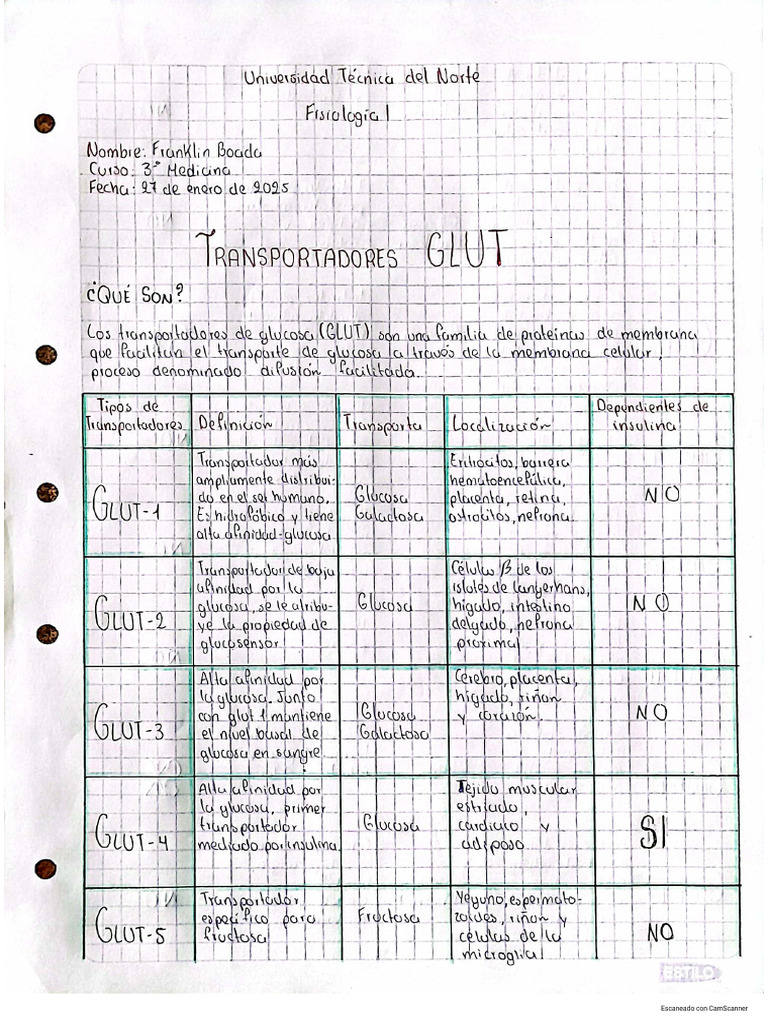 Universidad Técnica del Norte
Fisiología I
Nombre: Franklin Boada
Curso: 3° Medicina
Fecha: 27 de enero de 2025
TRANSPORTADORES GLUT
¿QUÉ SON?
Los transportadores de glucosa (GLUT) son una familia de proteinas de membrana
que facilitan el transporte de glucosa a través de la membrana celular,
proceso denominado difusión facilitada.
Tipos de
Transportadores
Definición
Transporta
Localización
Dependientes de
insulina
GLUT-1
Transportador más
ampliamente distribui-
do en el ser humano.
Es hidrofóbico y tiene
alta afinidad-glucosa
Glucosa
Galactosa
Eritrocitos, barrera
hematoencefálica,
placenta, retina,
astrocitos, nefrona.
NO
GLUT-2
Transportador de baja
afinidad por la
glucosa, se le atribu-
ye la propiedad de
glucosensor
Glucosa
Células β de los
islotes de Langerhans,
higado, intestino
delgado, nefrona
proximal
NO
GLUT-3
Alta afinidad por
la glucosa. Junto
con glut 1 mantiene
el nivel basal de
glucosa en sangre
Glucosa
Galactosa
Cerebro, placenta,
higado, riñon
y corazón.
NO
GLUT-4
Alta afinidad por
la glucosa, primer
transportador
mediado por insulina.
Glucosa
Tejido muscular
estriado,
cardiaco y
adiposo
SI
GLUT-5
Transportador
especifico para
fructosa
Fructosa
Yeyuno, espermato-
zoides, riñon y
células de la
microglia
NO
ESTILO
Escaneado con CamScanner